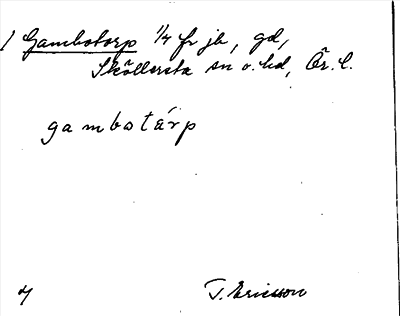 1 Gambotorp 1/4 fr jb, gd,
Sköllersta sn o. hd, Ör. l.
gambotárp
T. Ericsson